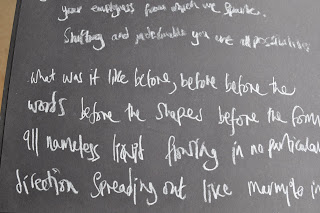 your emptyness from which we
Shifting and undefinable you are all possibilities
what was it like before, before before the
words before the shapes before the form
all nameless liquid flowing in no particular
direction spreading out like